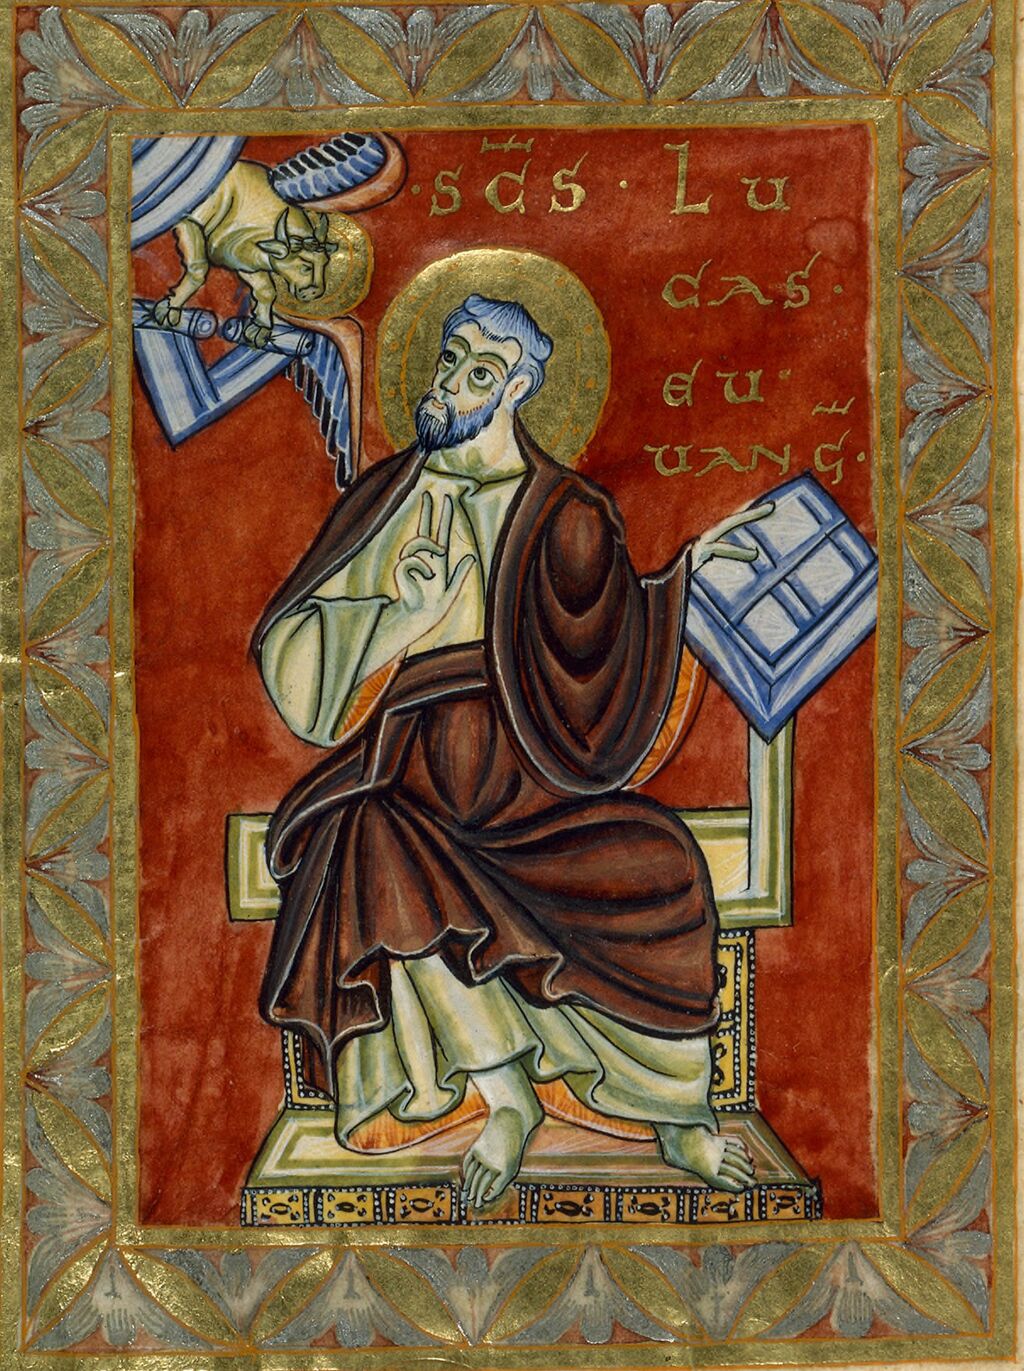 ·SC̄S· LU
CAS·
EU·
UANḠ·